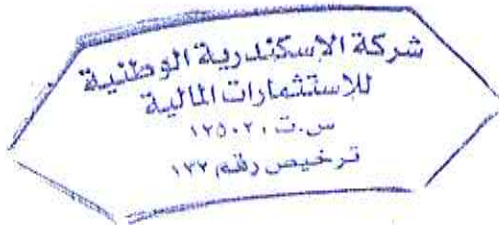 شركة الإسكندرية الوطنية
للإستثمارات المالية
س.ت ١٢٥٠٢٠
ترخيص رقم ١٣٢